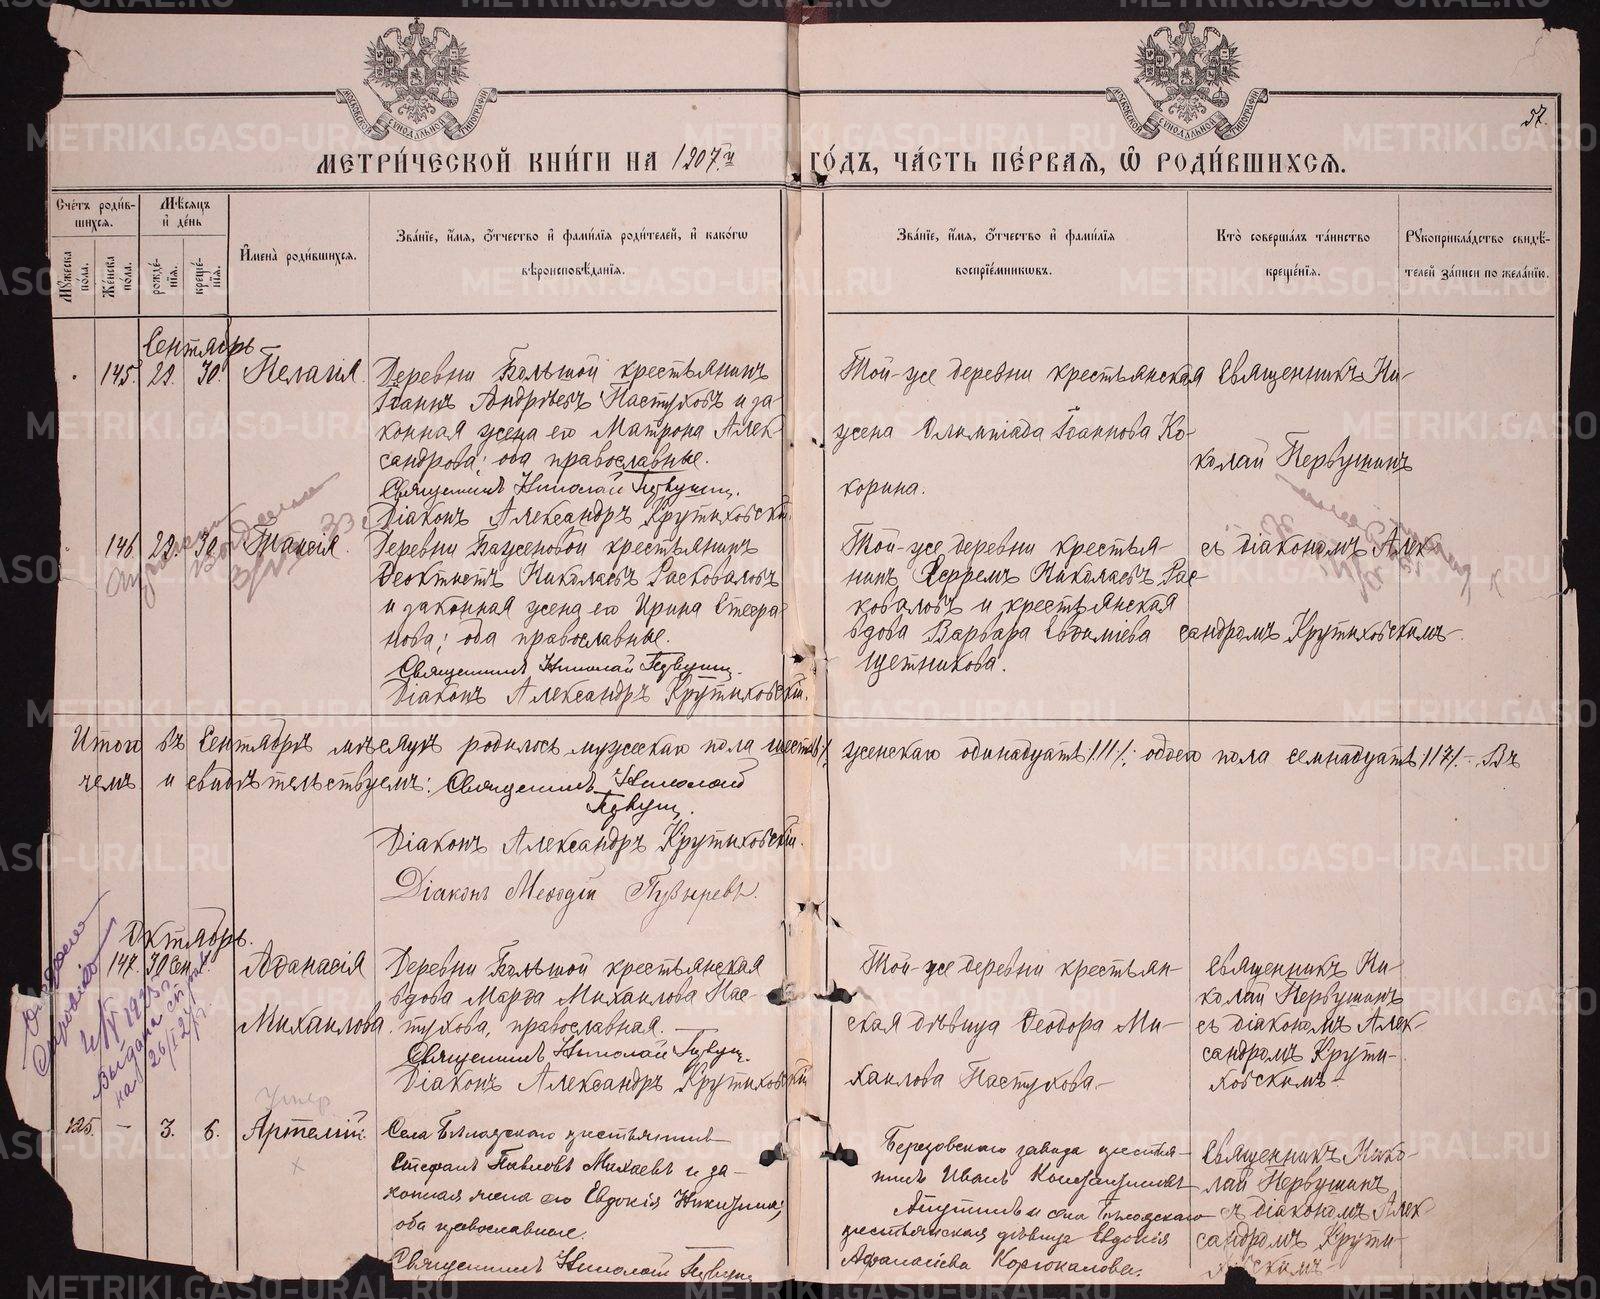 57.
МЕТРИ́ЧЕСКОЙ КНИ́ГИ НА 1907.й ГО́ДЪ, ЧА́СТЬ ПЕ́РВАЯ, Ѡ РОДИ́ВШИХСЯ.
Сче́тъ роди́вшихся.
Мѣ́сяцъ и де́нь
Му́жеска по́ла.
Же́нска по́ла.
рожде́нїя.
креще́нїя.
Имена̀ роди́вшихся.
Зва́нїе, и́мя, о́тчество и фами́лїя роди́телей, и како́гѡ
вѣроисповѣ́данїя.
Зва́нїе, и́мя, о́тчество и фами́лїя
воспрїе́мникѡвъ.
Кто̀ соверша́лъ та́инство
креще́нїя.
Рукоприкла́дство свидѣ́-
телей за́писи по жела́нїю.
Сентябрь
145. 29. 30. Пелагія.
Деревни Большой крестьянинъ
Іоаннъ Андреевъ Пастуховъ и за-
конная жена его Матрона Алек-
сандрова; оба православные.
Священникъ Николай Первушин.
Діаконъ Александръ Крутиховскій.
Той-же деревни крестьянская
жена Олимпіада Іоаннова Ко-
корина.
Священникъ Ни-
колай Первушинъ
146. 29. 30. Таисія.
Деревни Баженовой крестьянинъ
Ѳеоктистъ Николаевъ Расковаловъ
и законная жена его Ирина Стефа-
нова; оба православные.
Священникъ Николай Первушин.
Діаконъ Александръ Крутиховскій.
Той-же деревни крестья-
нинъ Ефремъ Николаевъ Рас-
коваловъ и крестьянская
вдова Варвара Евфиміева
Щетникова.
съ діакономъ Алек-
сандромъ Крутиховскимъ.
Итого въ Сентябрѣ мѣсяцѣ родилось мужескаго пола шесть /6/; женскаго одинадцать /11/; обоего пола семнадцать /17/.- Въ
чемъ и свидѣтельствуемъ: Священникъ Николай
Первушин.
Діаконъ Александръ Крутиховскій.
Діаконъ Меѳодій Пузыревъ.
Октябрь.
147. 30 Сен. Аѳанасія
Михаилова.
Деревни Большой крестьянская
вдова Марѳа Михаилова Пас-
тухова, православная.
Священникъ Николай Первуш.
Діаконъ Александръ Крутиховскій
Той-же деревни крестьян-
ская дѣвица Ѳеодора Ми-
хаилова Пастухова.-
Священникъ Ни-
колай Первушинъ
съ діакономъ Алек-
сандромъ Крути-
ховскимъ-
Выдана справка
26/I 27 г.
умер
125. - 3. 6. Артемій.
Села крестьянинъ
Стефанъ Павловъ Михаевъ и за-
конная жена его Евдокія Никитина;
оба православные.
Священникъ Николай Первуш
Березовскаго завода крестья-
нинъ Иванъ Константиновъ
и села
крестьянская дѣвица Евдокія
Афанасіева Корюкалова.
Священникъ Нико-
лай Первушинъ
съ діакономъ Алек-
сандромъ Крути-
ховскимъ-
METRIKI.GASO-URAL.RU